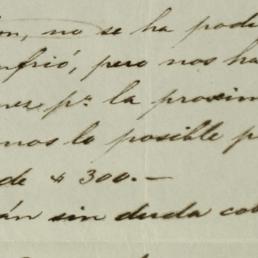 ón, no se ha podi
nfrió, pero nos ha
nez pr. la proxim
mos lo posible p
de $ 300.—
án sin duda co